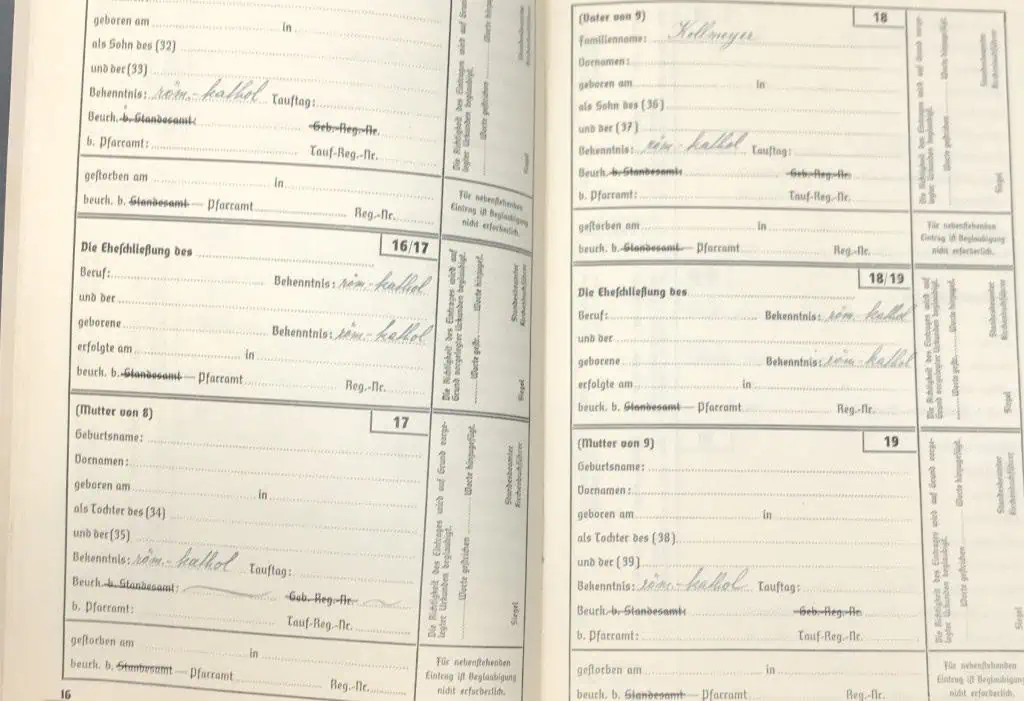 geboren am in
als Sohn des (32)
und der (33)
Bekenntnis: röm.-kathol Tauftag:
Beurk. b. Standesamt: Geb.-Reg.-Nr.
b. Pfarramt: Tauf-Reg.-Nr.
gestorben am in
beurk. b. Standesamt — Pfarramt Reg.-Nr.
Die Richtigkeit des Eintrages wird auf Grund vorge-
legter Urkunden beglaubigt.
Worte gestrichen Worte hinzugef.
Standesbeamter
Kirchenbuchführer
Siegel
Für nebenstehenden
Eintrag ist Beglaubigung
nicht erforderlich.
16/17
Die Eheschließung des
Beruf: Bekenntnis: röm.-kathol
und der
geborene Bekenntnis: röm.-kathol
erfolgte am in
beurk. b. Standesamt — Pfarramt Reg.-Nr.
Die Richtigkeit des Eintrages wird auf
Grund vorgelegter Urkunden beglaubigt.
Worte gestr. Worte hinzugef.
Standesbeamter
Kirchenbuchführer
Siegel
(Mutter von 8) 17
Geburtsname:
Vornamen:
geboren am in
als Tochter des (34)
und der (35)
Bekenntnis: röm.-kathol Tauftag:
Beurk. b. Standesamt: Geb. Reg.-Nr.
b. Pfarramt: Tauf-Reg.-Nr.
gestorben am in
beurk. b. Standesamt — Pfarramt Reg.-Nr.
Die Richtigkeit des Eintrages wird auf Grund vorge-
legter Urkunden beglaubigt.
Worte gestrichen Worte hinzugefügt.
Standesbeamter
Kirchenbuchführer
Siegel
Für nebenstehenden
Eintrag ist Beglaubigung
nicht erforderlich.
16
(Vater von 9) 18
Familienname: Kollmeyer
Vornamen:
geboren am in
als Sohn des (36)
und der (37)
Bekenntnis: röm.-kathol Tauftag:
Beurk. b. Standesamt: Geb.-Reg.-Nr.
b. Pfarramt: Tauf-Reg.-Nr.
gestorben am in
beurk. b. Standesamt — Pfarramt Reg.-Nr.
Die Richtigkeit des Eintrages wird auf Grund vorge-
legter Urkunden beglaubigt.
Worte gestrichen Worte hinzugefügt.
Standesbeamter
Kirchenbuchführer
Siegel
Für nebenstehenden
Eintrag ist Beglaubigung
nicht erforderlich.
18/19
Die Eheschließung des
Beruf: Bekenntnis: röm.-kathol
und der
geborene Bekenntnis: röm.-kathol
erfolgte am in
beurk. b. Standesamt — Pfarramt Reg.-Nr.
Die Richtigkeit des Eintrages wird auf
Grund vorgelegter Urkunden beglaubigt.
Worte gestr. Worte hinzugef.
Standesbeamter
Kirchenbuchführer
Siegel
(Mutter von 9) 19
Geburtsname:
Vornamen:
geboren am in
als Tochter des (38)
und der (39)
Bekenntnis: röm.-kathol Tauftag:
Beurk. b. Standesamt: Geb.-Reg.-Nr.
b. Pfarramt: Tauf-Reg.-Nr.
gestorben am in
beurk. b. Standesamt — Pfarramt Reg.-Nr.
Die Richtigkeit des Eintrages wird auf Grund vorge-
legter Urkunden beglaubigt.
Worte gestrichen Worte hinzugefügt.
Standesbeamter
Kirchenbuchführer
Siegel
Für nebenstehenden
Eintrag ist Beglaubigung
nicht erforderlich.